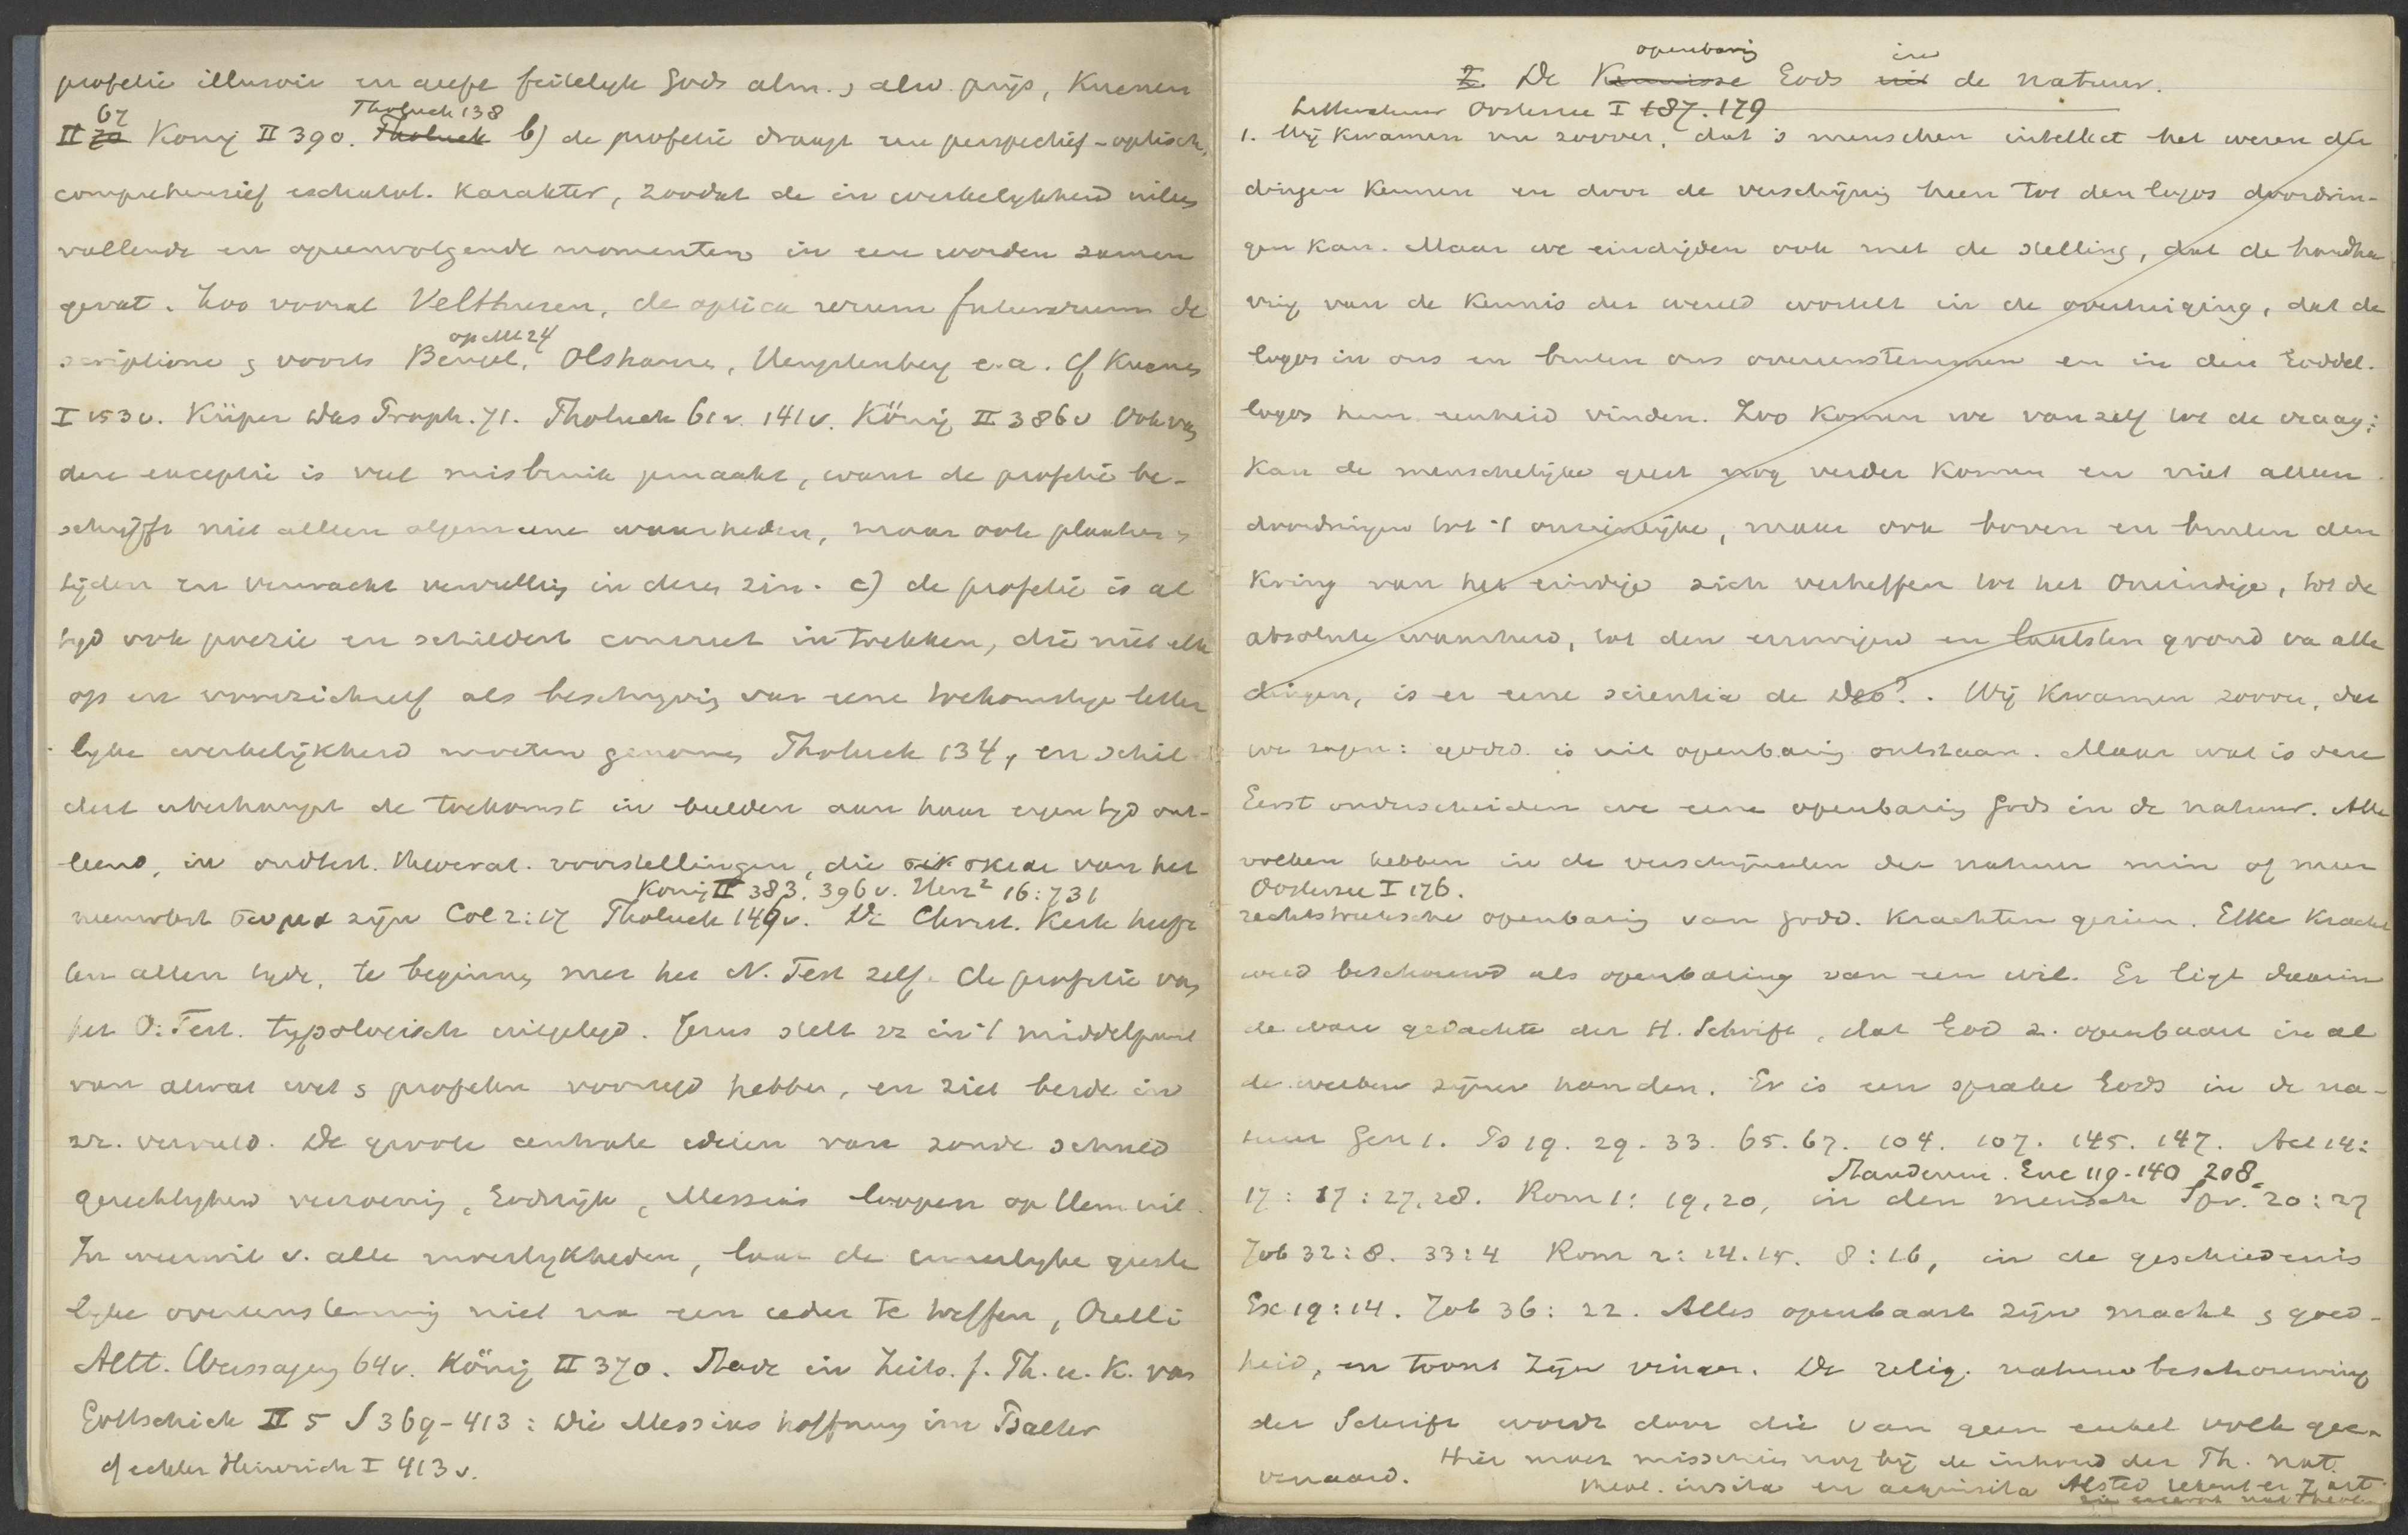 profetie illusoir en geeft feitelijk Gods alm. & alw. prijs, Kuenen
67 Tholuck 138
II 70 König II 390. Tholuck b) de profetie draagt een perspectief-optisch,
comprehensief eschatol. karakter, zoodat de in werkelijkheid uiteen
vallende en opeenvolgende momenten in een worden samen
gevat. Zoo vooral Velthusen, de optica rerum futurarum de
op Mt 24
scriptione & voorts Bengel, Olshausen, Hengstenberg e.a. Cf Kuenen
I 153v. Küper das Proph. 71. Tholuck 61v. 141v. König II 386v Ook van
deze exceptie is veel misbruik gemaakt, want de profetie be-
schrijft niet alleen algemeene waarheden, maar ook plaatsen &
tijden en verwacht vervulling in dezen zin. c) de profetie is al
tijd ook poezie en schildert concreet in trekken, die niet elk
op en voor zichzelf als beschrijving van eene toekomstige letter
lijke werkelijkheid moeten genomen Tholuck 134, en schil-
dert überhaupt de toekomst in beelden aan haar eigen tijd ont-
leend, in oudtest. theocrat. voorstellingen, die σκιαι van het
König II 383. 396v. Herz² 16:731
nieuwtest σωμα zijn Col 2:17 Tholuck 149v. De Christ. Kerk heeft
ten allen tijde, te beginnen met het N. Test zelf. de profetie van
het O. Test. typologisch uitgelegd. Jezus stelt zz in 't middelpunt
van alwat wet & profeten voorzegd hebben, en ziet beide in
zz. vervuld. De groote centrale ideeën van zonde schuld
gerechtigheid verzoening, Godsrijk, Messias loopen op Hem uit.
In weerwil v. alle moeilijkheden, laat de innerlijke geeste
lijke overeenstemming niet na een ieder te treffen, Orelli
Altt. Weissagung 64v. König II 370. Stade in Zeits. f. Th. u. K. van
Gottschick II 5 S 369-413: Die Messias hoffnung im Psalter
cf echter Heinrich I 413v.
openbaring in
2. De Kennisse Gods uit de natuur.
Litteratuur Oosterzee I 187. 179
1. Wij kwamen nu zoover, dat 's menschen intellect het wezen der
dingen kennen en door de verschijning heen tot den logos doordrin-
gen kan. Maar we eindigden ook met de stelling, dat de handha
ving van de kennis der wereld wortelt in de overtuiging, dat de
logos in ons en buiten ons overeenstemmen en in den Goddel.
logos hun eenheid vinden. Zoo komen we vanzelf tot de vraag:
Kan de menschelijke geest nog verder komen en niet alleen
doordringen tot 't onzienlijke, maar ook boven en buiten den
kring van het eindige zich verheffen tot het Oneindige, tot de
absolute waarheid, tot den eeuwigen en laatsten grond va alle
dingen, is er eene scientia de Deo?. Wij kwamen zoover, dat
we zagen: godsd. is uit openbaring ontstaan. Maar wat is deze
Eerst onderscheiden we eene openbaring Gods in de natuur. Alle
volken hebben in de verschijnselen der natuur min of meer
Oosterzee I 176.
rechtstreeksche openbaring van godd. krachten gezien. Elke kracht
werd beschouwd als openbaring van een wil. Er ligt daarin
de ware gedachte der H. Schrift, dat God z. openbaart in al
de werken zijner handen. Er is een sprake Gods in de na-
tuur Gen 1. Ps 19. 29. 33. 65. 67. 104. 107. 145. 147. Act 14:
Enc 119-140 208.
17: 17:27,28. Rom 1: 19,20, in den mensch Spr. 20:27
Job 32:8. 33:4 Rom 2:14.15. 8:16, in de geschiedenis
Ex 19:14. Job 36:22. Alles openbaart zijne macht & goed-
heid, en toont zijn vinger. De relig. natuurbeschouwing
der Schrift wordt door die van geen enkel volk geë-
Hier moet misschien nog bij de inhoud der Th. nat.
venaard.
theol. insita en acquisita Alsted rekent er 7 art